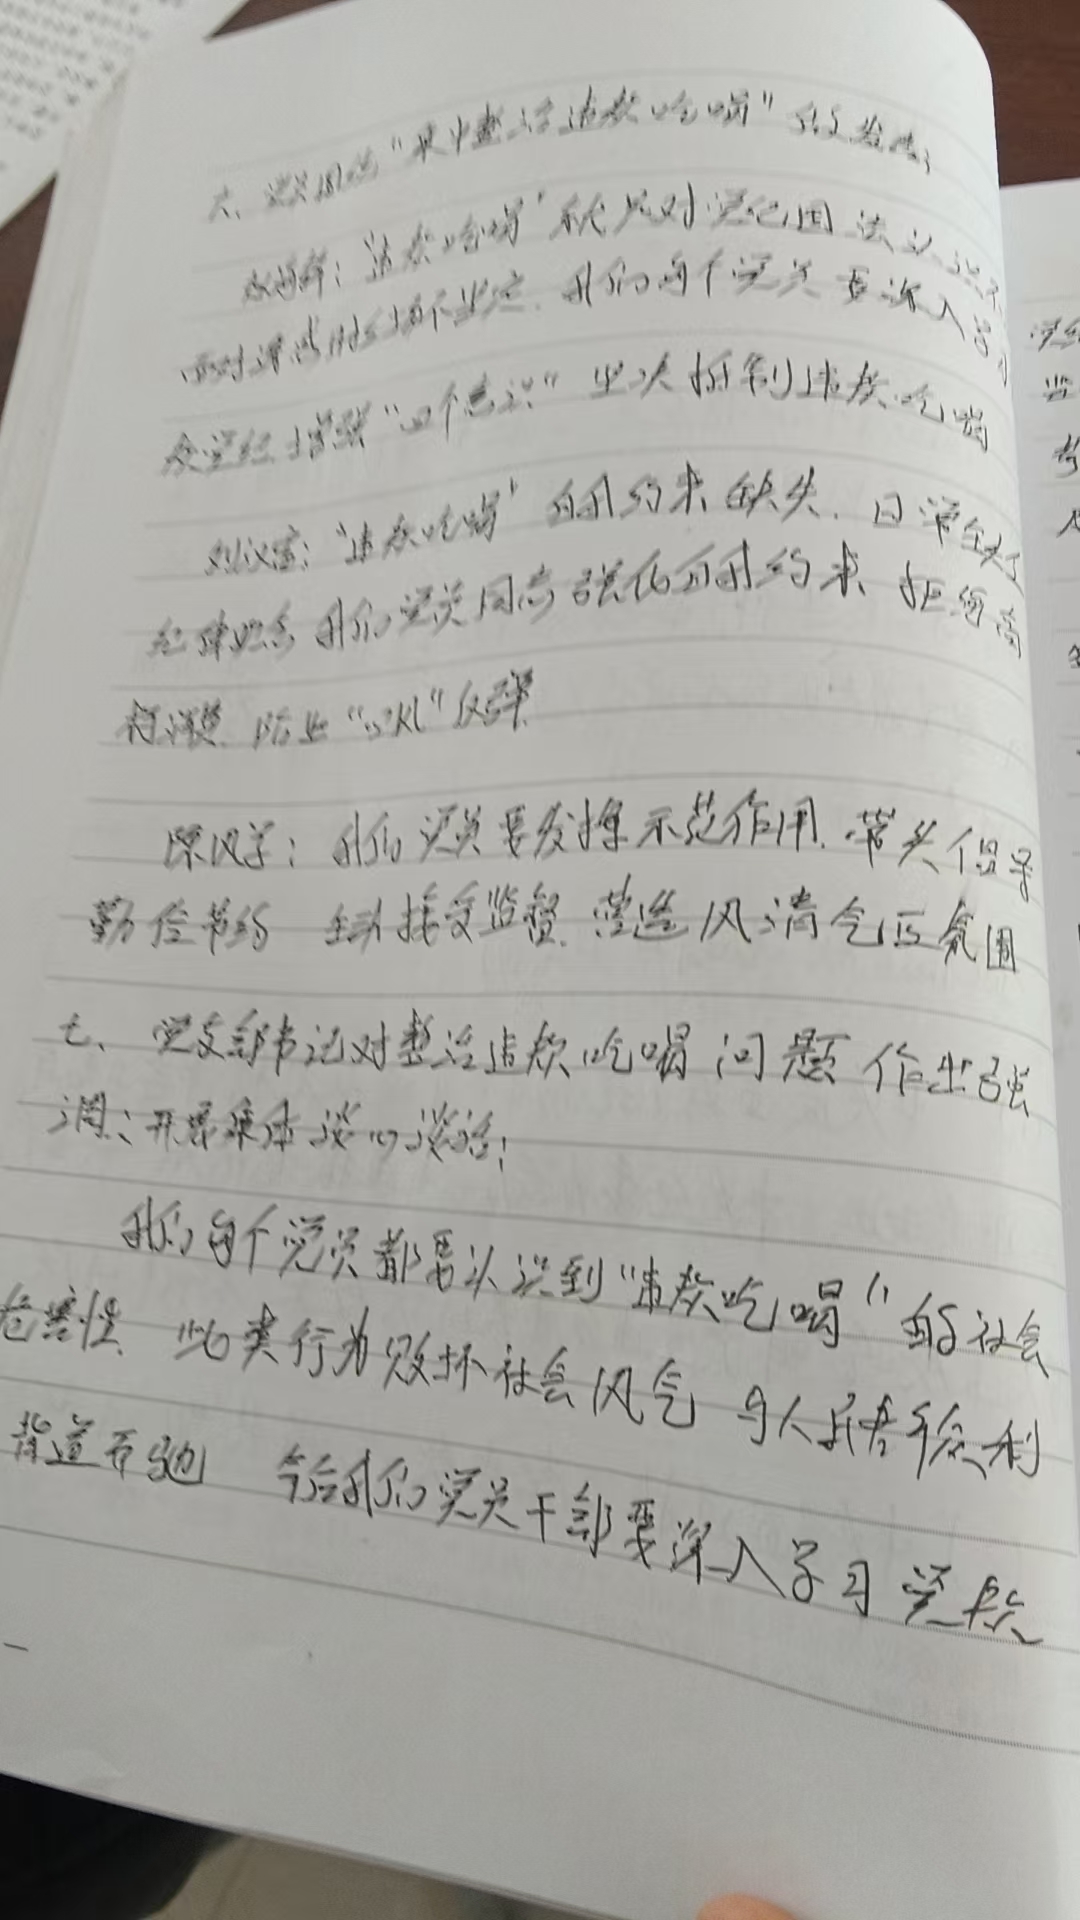 六、党员围绕“集中整治违规吃喝”的发言：
“违规吃喝”就是对党纪国法认识不
面对诱惑时立场不坚定，我们每个党员要深入学习
党纪增强“四个意识”坚决抵制违规吃喝
“违规吃喝”自我约束缺失，日常
纪律 我们党员同志强化自我约束 拒绝高
档消费 防止“四风”反弹
我们党员要发挥示范作用，带头倡导
勤俭节约 主动接受监督，营造风清气正氛围
七、党支部书记对整治违规吃喝问题作出强
调、开展集体谈心谈话：
我们每个党员都要认识到“违规吃喝”的社会
危害性，此类行为败坏社会风气 与人民群众利
背道而驰 今后我们党员干部要深入学习党